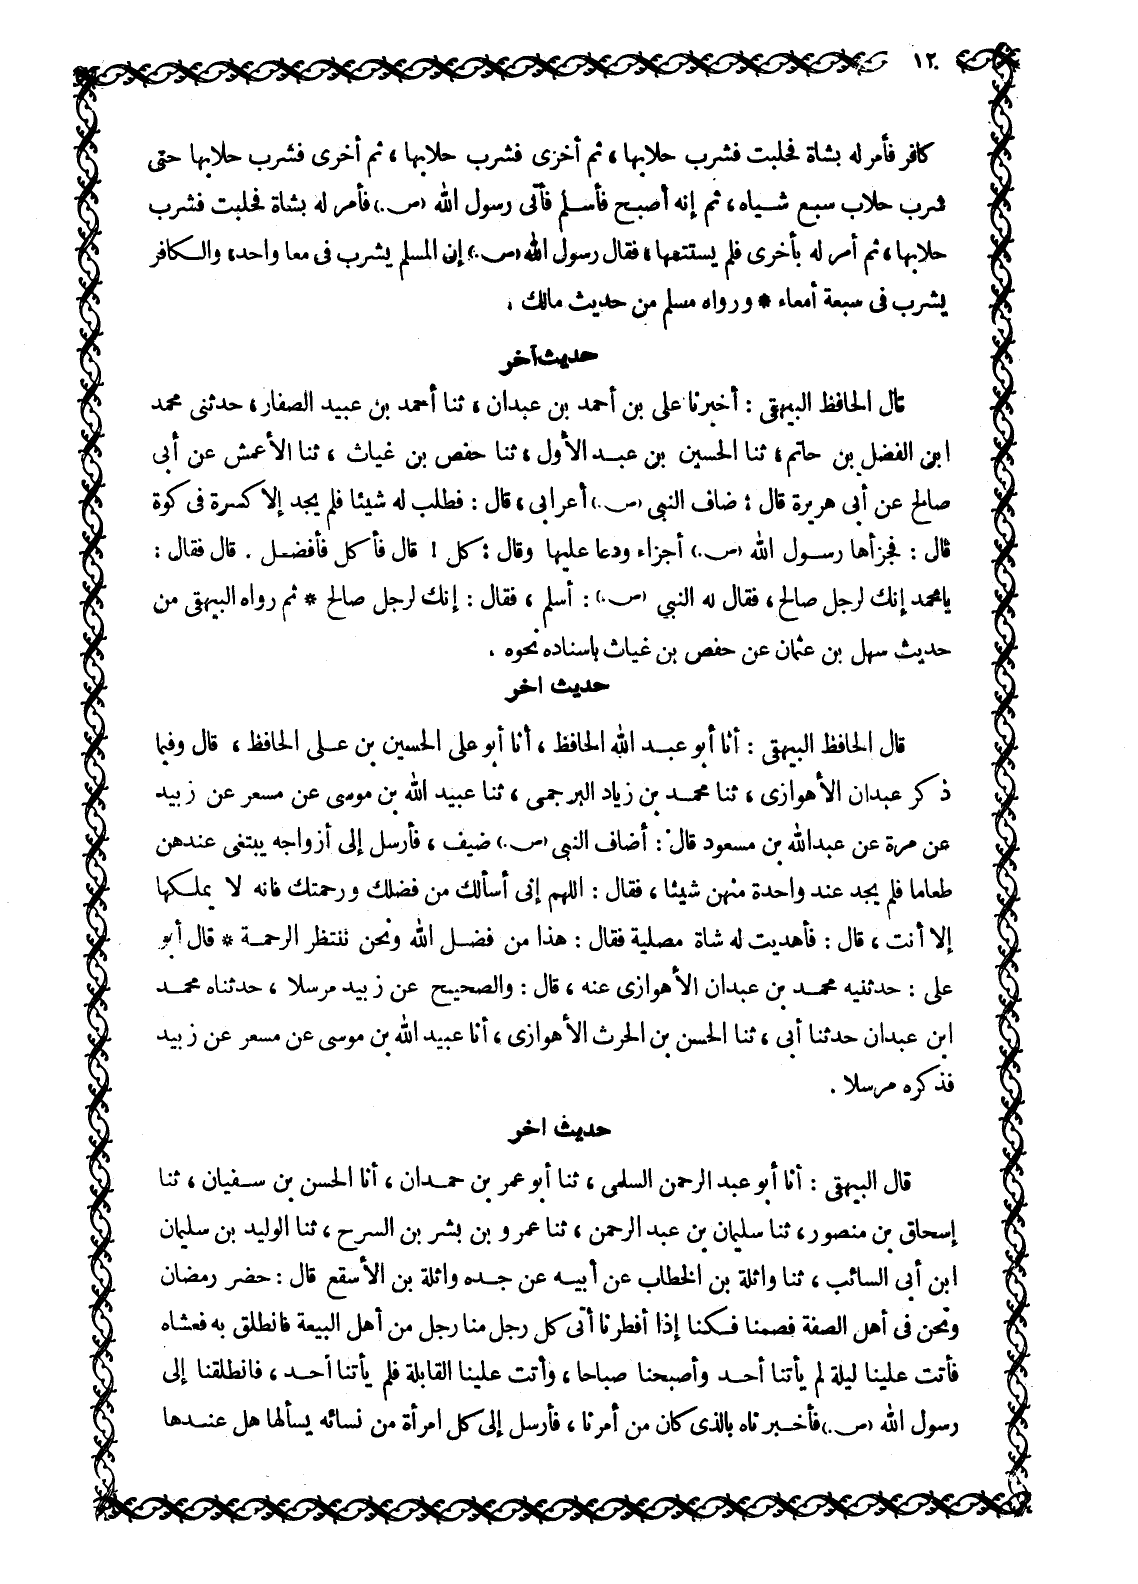 ١٢٠
كافر فأمر له بشاة فحلبت فشرب حلابها ، ثم أخزى فشرب حلابها ، ثم أخرى فشرب حلابها حتى
شرب حلاب سبع شياه ، ثم إنه أصبح فأسلم فأتى رسول الله (ص.) فأمر له بشاة فحلبت فشرب
حلابها ، ثم أمر له بأخرى فلم يستتمها ، فقال رسول الله (ص.) إن المسلم يشرب فى معا واحد ، والكافر
يشرب فى سبعة أمعاء * ورواه مسلم من حديث مالك .
حديث آخر
قال الحافظ البيهقى : أخبرنا على بن أحمد بن عبدان ، ثنا أحمد بن عبيد الصفار ، حدثنى محمد
ابن الفضل بن حاتم ، ثنا الحسين بن عبد الأول ، ثنا حفص بن غياث ، ثنا الأعمش عن أبى
صالح عن أبى هريرة قال : ضاف النبى (ص.) أعرابى ، قال : فطلب له شيئا فلم يجد إلا كسرة فى كوة
قال : فجزأها رسول الله (ص.) أجزاء ودعا عليها وقال : كل ! قال فأكل فأفضل . قال فقال :
يامحمد إنك لرجل صالح ، فقال له النبي (ص.) : أسلم ، فقال : إنك لرجل صالح * ثم رواه البيهقى من
حديث سهل بن عثمان عن حفص بن غياث باسناده نحوه .
حديث اخر
قال الحافظ البيهقى : أنا أبو عبد الله الحافظ ، أنا أبو على الحسين بن على الحافظ ، قال وفيما
ذكر عبدان الأهوازى ، ثنا محمد بن زياد البرجمى ، ثنا عبيد الله بن موسى عن مسعر عن زبيد
عن مرة عن عبدالله بن مسعود قال : أضاف النبى (ص.) ضيف ، فأرسل إلى أزواجه يبتغى عندهن
طعاما فلم يجد عند واحدة منهن شيئا ، فقال : اللهم إنى أسألك من فضلك ورحمتك فانه لا يملكها
إلا أنت ، قال : فأهديت له شاة مصلية فقال : هذا من فضل الله ونحن ننتظر الرحمة * قال أبو
على : حدثنيه محمد بن عبدان الأهوازى عنه ، قال : والصحيح عن زبيد مرسلا ، حدثناه محمد
ابن عبدان حدثنا أبى ، ثنا الحسن بن الحرث الأهوازى ، أنا عبيد الله بن موسى عن مسعر عن زبيد
فذكره مرسلا .
حديث اخر
قال البيهقى : أنا أبو عبد الرحمن السلمى ، ثنا أبو عمر بن حمدان ، أنا الحسن بن سفيان ، ثنا
إسحاق بن منصور ، ثنا سليمان بن عبد الرحمن ، ثنا عمرو بن بشر بن السرح ، ثنا الوليد بن سليمان
ابن أبى السائب ، ثنا واثلة بن الخطاب عن أبيه عن جده واثلة بن الأسقع قال : حضر رمضان
ونحن فى أهل الصفة فصمنا فكنا إذا أفطرنا أتى كل رجل منا رجل من أهل البيعة فانطلق به فعشاه
فأتت علينا ليلة لم يأتنا أحد وأصبحنا صباحا ، وأتت علينا القابلة فلم يأتنا أحد ، فانطلقنا إلى
رسول الله (ص.) فأخبرناه بالذى كان من أمرنا ، فأرسل إلى كل امرأة من نسائه يسألها هل عندها